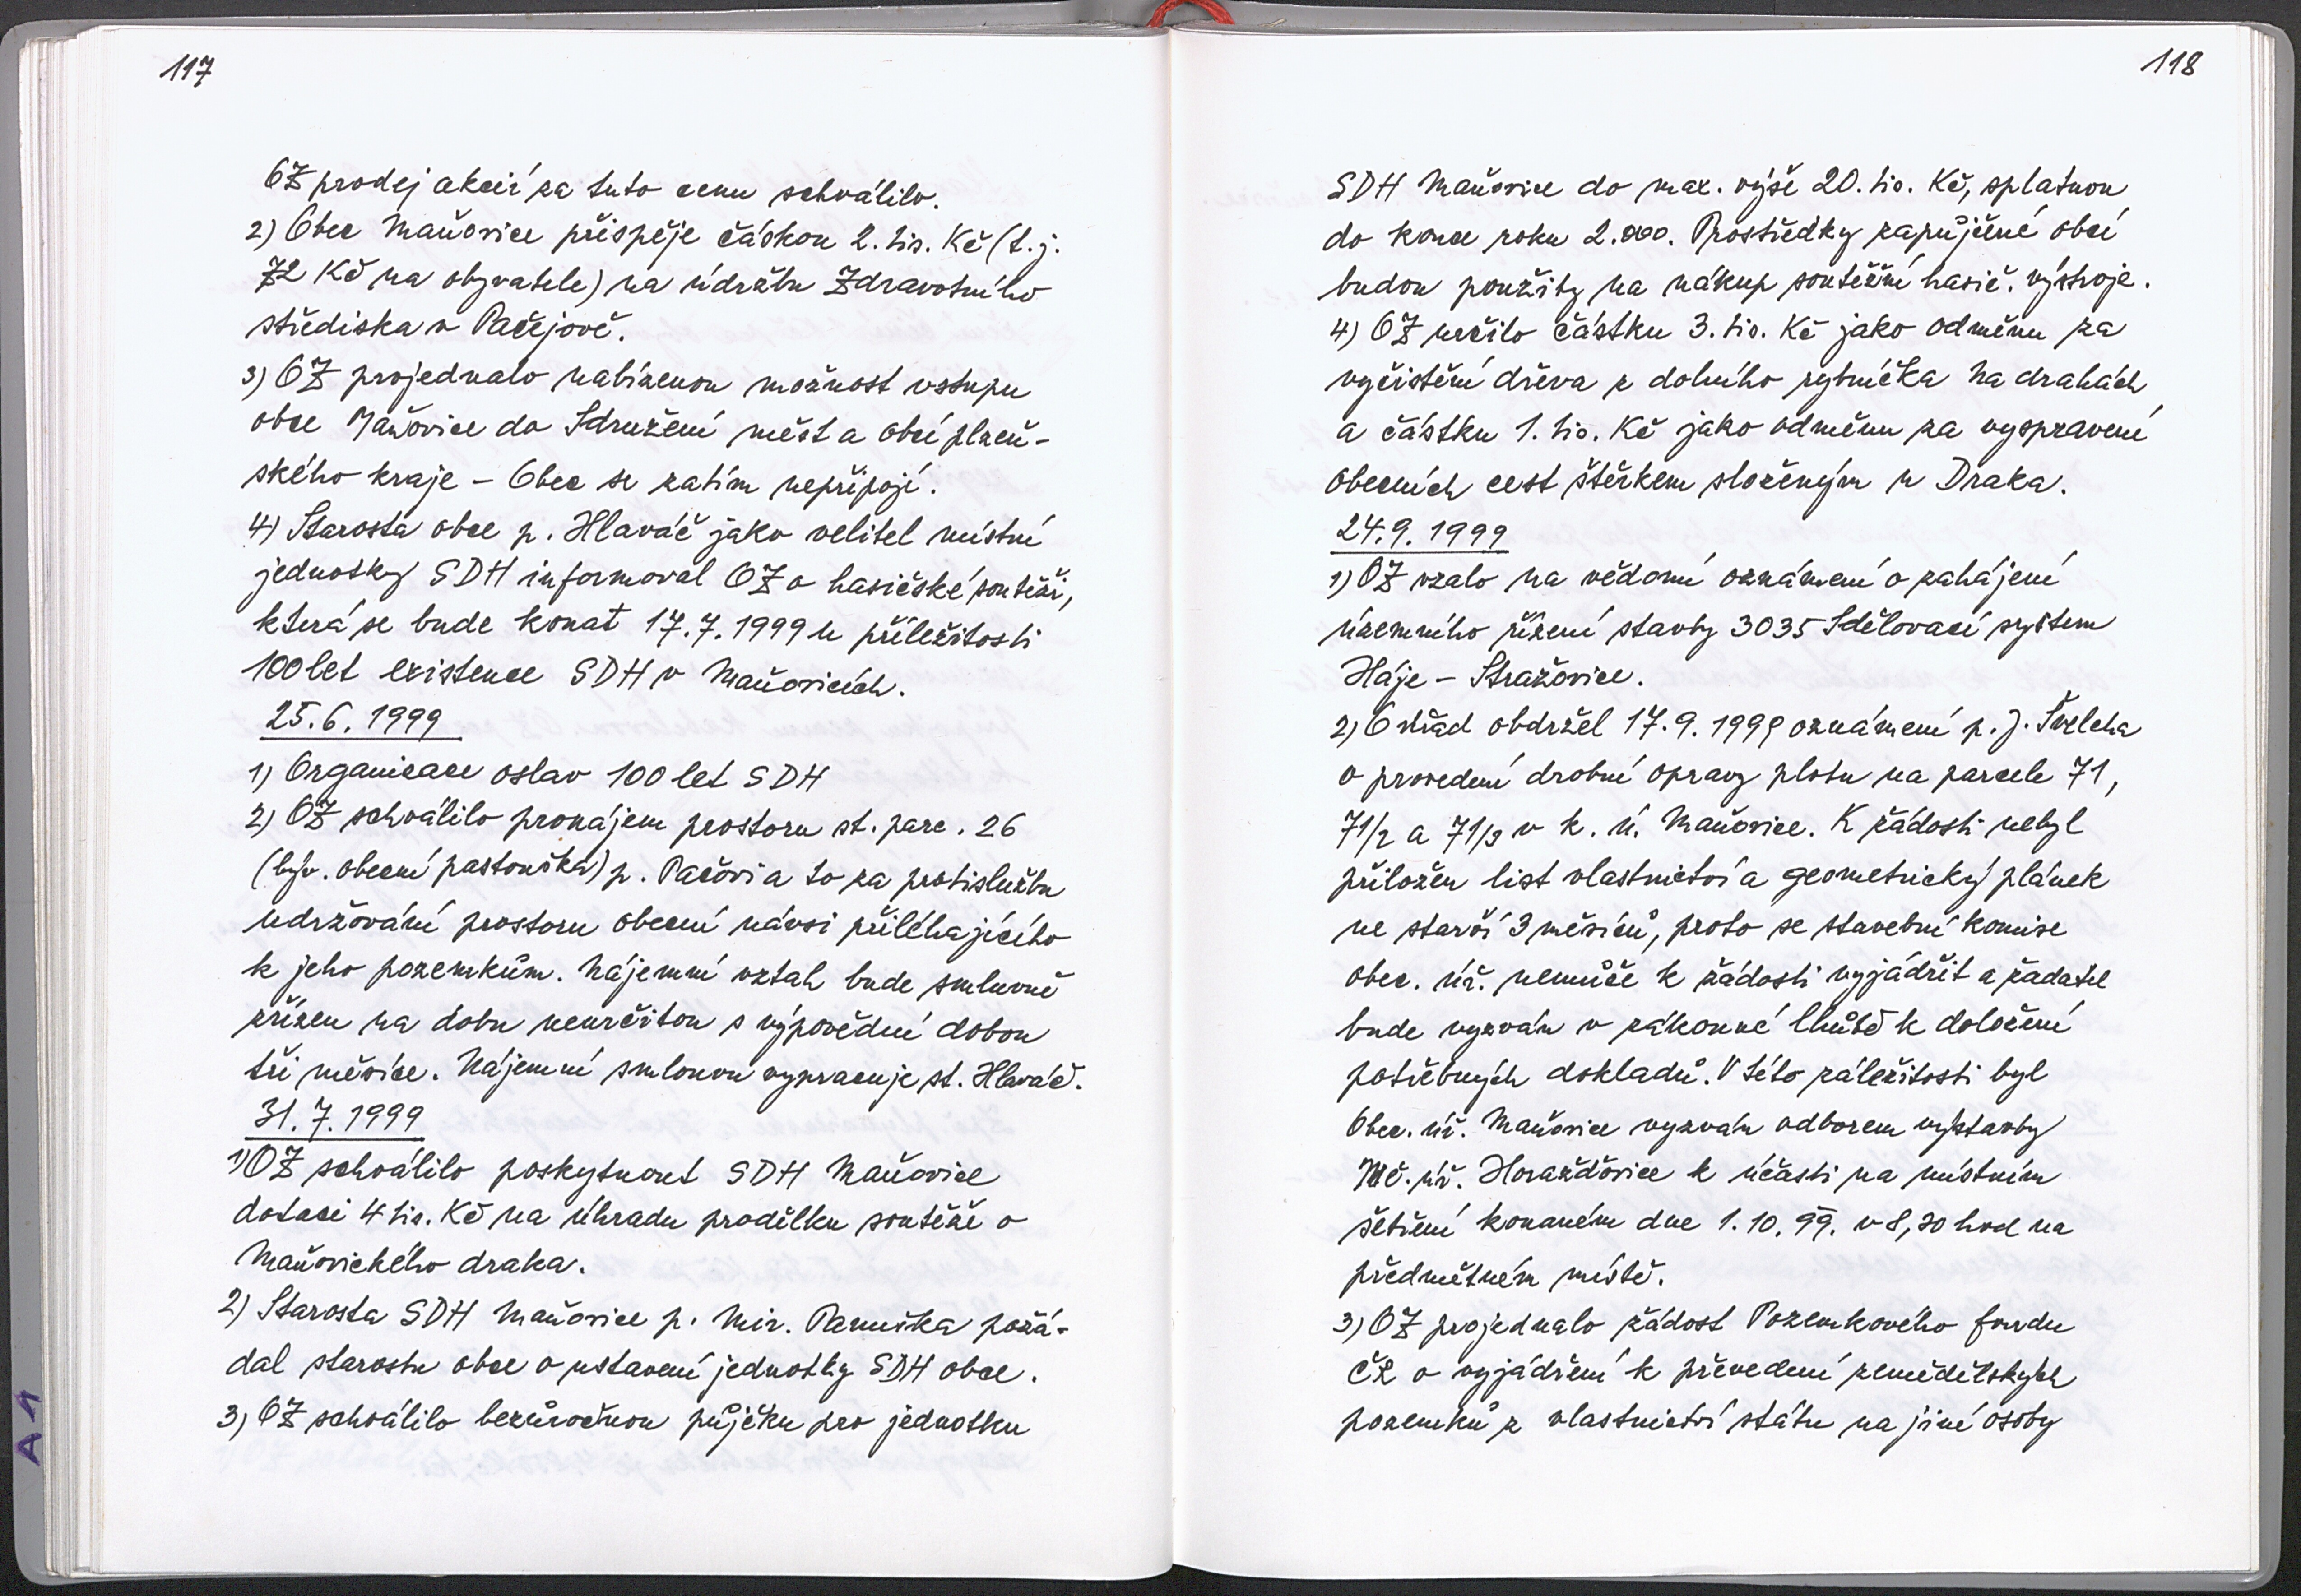 117
OZ prodej akcií za tuto cenu schválilo.
2) Obec Maňovice přispěje částkou 2. tis. Kč (t.j.
72 Kč na obyvatele) na údržbu Zdravotního
střediska v Pačejově.
3) OZ projednalo nabízenou možnost vstupu
obce Maňovice do Sdružení měst a obcí plzeň-
ského kraje - Obec se zatím nepřipojí.
4) Starosta obce p. Hlaváč jako velitel místní
jednotky SDH informoval OZ o hasičské soutěži,
která se bude konat 17.7.1999 u příležitosti
100 let existence SDH v Maňovicích.
25.6.1999
1) Organizace oslav 100 let SDH
2) OZ schválilo pronájem prostoru st. parc. 26
(býv. obecní pastouška) p. Pačovi a to za protislužbu
udržování prostoru obecní návsi přiléhajícího
k jeho pozemkům. Nájemní vztah bude smluvně
zřízen na dobu neurčitou s výpovědní dobou
tři měsíce. Nájemní smlouvu vypracuje st. Hlaváč.
31.7.1999
1) OZ schválilo poskytnout SDH Maňovice
dotaci 4 tis. Kč na úhradu prodělku soutěže o
Maňovického draka.
2) Starosta SDH Maňovice p. Mir. Paruška požá-
dal starostu obce o ustavení jednotky SDH obce.
3) OZ schválilo bezúročnou půjčku pro jednotku
118
SDH Maňovice do max. výše 20. tis. Kč, splatnou
do konce roku 2.000. Prostředky zapůjčené obcí
budou použity na nákup soutěžní hasič. výstroje.
4) OZ určilo částku 3. tis. Kč jako odměnu za
vyčistění dřeva z dolního rybníčka Na drahách
a částku 1. tis. Kč jako odměnu za vyspravení
obecních cest štěrkem složeným u Draka.
24.9.1999
1) OZ vzalo na vědomí oznámení o zahájení
územního řízení stavby 3035 Sdělovací systém
Háje - Stražovice.
2) O úřad obdržel 17.9.1999 oznámení p. J. Švelcha
o provedení drobné opravy plotu na parcele 71,
71/2 a 71/3 v k. ú. Maňovice. K žádosti nebyl
přiložen list vlastnictví a geometrický plánek
ne starší 3 měsíců, proto se stavební komise
obec. úř. nemůže k žádosti vyjádřit a žadatel
bude vyzván v zákonné lhůtě k doložení
potřebných dokladů. V této záležitosti byl
Obec. úř. Maňovice vyzván odborem výstavby
Mě. úř. Horažďovice k účasti na místním
šetření konaném dne 1.10.99. v 8,30 hod na
předmětném místě.
3) OZ projednalo žádost Pozemkového fondu
ČR o vyjádření k převedení zemědělských
pozemků z vlastnictví státu na jiné osoby
A1